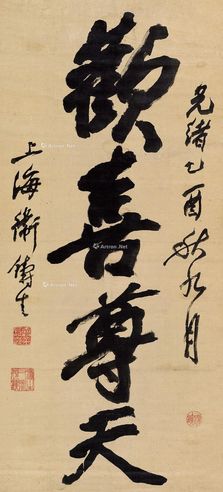 光緒乙酉秋九月
歡喜尊天
上海衛鑄生
Artron.Net